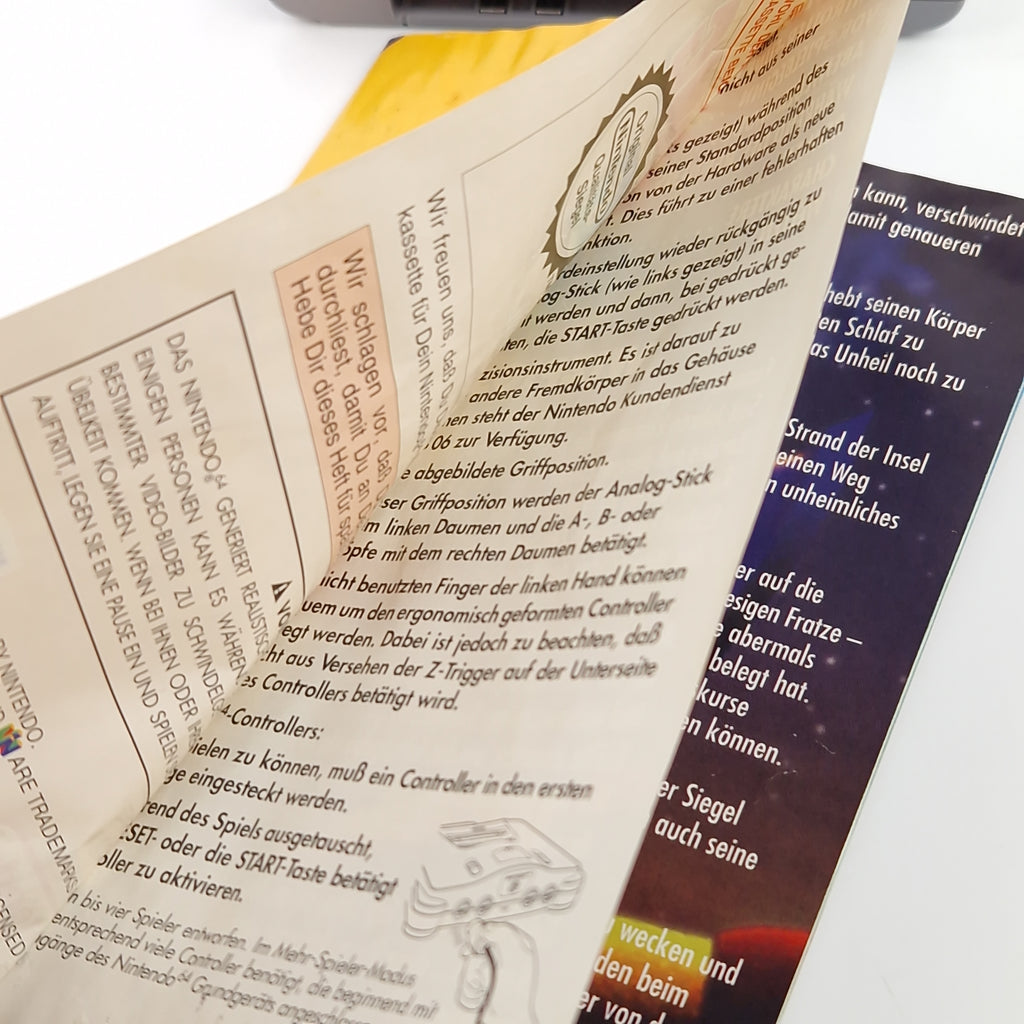 Wir freuen uns, daß
kassette für Dein Nintendo
Wir schlagen vor, daß
durchliest, damit Du an
Hebe Dir dieses Heft für
DAS NINTENDO64 GENERIERT REALISTISC
EINIGEN PERSONEN KANN ES WÄHREN
BESTIMMTER VIDEO-BILDER ZU SCHWINDELG
ÜBELKEIT KOMMEN. WENN BEI IHNEN ODER
AUFTRITT, LEGEN SIE EINE PAUSE EIN UND SPIELEN
BY NINTENDO.
ARE TRADEMARKS
CENSED
Original
Nintendo
Qualitäts-
Siegel
nicht aus seiner
ks gezeigt) während des
seiner Standardposition
on von der Hardware als neue
t. Dies führt zu einer fehlerhaften
nktion.
rdeinstellung wieder rückgängig zu
og-Stick (wie links gezeigt) in seine
it werden und dann, bei gedrückt ge-
ten, die START-Taste gedrückt werden.
zisionsinstrument. Es ist darauf zu
andere Fremdkörper in das Gehäuse
nen steht der Nintendo Kundendienst
06 zur Verfügung.
e abgebildete Griffposition.
ser Griffposition werden der Analog-Stick
m linken Daumen und die A-, B- oder
öpfe mit dem rechten Daumen betätigt.
icht benutzten Finger der linken Hand können
uem um den ergonomisch geformten Controller
egt werden. Dabei ist jedoch zu beachten, daß
cht aus Versehen der Z-Trigger auf der Unterseite
es Controllers betätigt wird.
4-Controllers:
ielen zu können, muß ein Controller in den ersten
ge eingesteckt werden.
rend des Spiels ausgetauscht,
ESET- oder die START-Taste betätigt
oller zu aktivieren.
n bis vier Spieler entworfen. Im Mehr-Spieler-Modus
entsprechend viele Controller benötigt, die beginnend mit
gänge des Nintendo64 Grundgeräts angeschlossen
n kann, verschwindet
amit genaueren
hebt seinen Körper
en Schlaf zu
as Unheil noch zu
Strand der Insel
einen Weg
n unheimliches
er auf die
esigen Fratze –
e abermals
belegt hat.
kurse
en können.
er Siegel
auch seine
wecken und
den beim
er von d